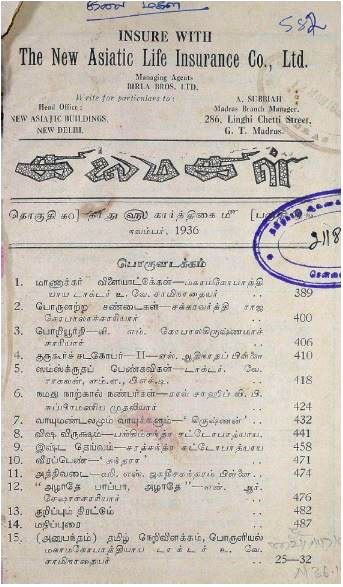 கலை மகள்
582
INSURE WITH
The New Asiatic Life Insurance Co., Ltd.
Managing Agents
BIRLA BROS. LTD.
Write for particulars to:
Head Office:
NEW ASIATIC BUILDINGS,
NEW DELHI.
A. SUBBIAH
Madras Branch Manager.
286, Linghi Chetti Street,
G. T. Madras.
கலைமகள்
தொகுதி கூ] தாது ௵ கார்த்திகை ௴
நவம்பர், 1936
2118
பொருளடக்கம்
1. மாணாக்கர் விளையாட்டுகள்—மகாமகோபாத்தி
யாய டாக்டர் உ. வே. சாமிநாதையர் .. 389
2. பொருளற்ற சண்டைகள்—சக்கரவர்த்தி ராஜ
கோபாலாச்சாரியார் .. 400
3. பொறியூர்தி—வி. எம். கோபாலகிருஷ்ணமாச்
சாரியார் .. 406
4. குருகூர்ச் சடகோபர்—II—எஸ். ஆதிநாதப் பிள்ளை 410
5. ஸம்ஸ்க்ருதப் பெண்கவிகள்—டாக்டர். வே.
ராகவன், எம்.ஏ., பிஎச்.டி. .. 418
6. நமது நாற்கால் நண்பர்கள்—ராவ் சாஹிப் வி. பி.
சுப்பிரமணிய முதலியார் .. 424
7. வாயுமண்டலமும் வாயுக்களும்—'கிருஷ்ணன்' .. 432
8. விஷ விருக்ஷம்—பங்கிம்சந்த்ர சட்டோபாத்யாய. 441
9. இஷ்ட தெய்வம்—சரத்சந்த்ர சட்டோபாத்யாய 458
10. வீரப்பெண்—'சுந்தரா' .. 471
11. அத்திவடை—வி. எஸ். ஜகதீசசுந்தரம் பிள்ளை .. 474
12. "அழாதே பாப்பா, அழாதே"—என். ஆர்.
சேஷாச்சாரியார் .. 476
13. குறிப்பும் திரட்டும் .. 482
14. மதிப்புரை .. 487
15. (அனுபந்தம்) தமிழ் நெறிவிளக்கம், பொருளியல்
மகாமகோபாத்தியாய டாக்டர் உ. வே.
சாமிநாதையர் .. 25—32